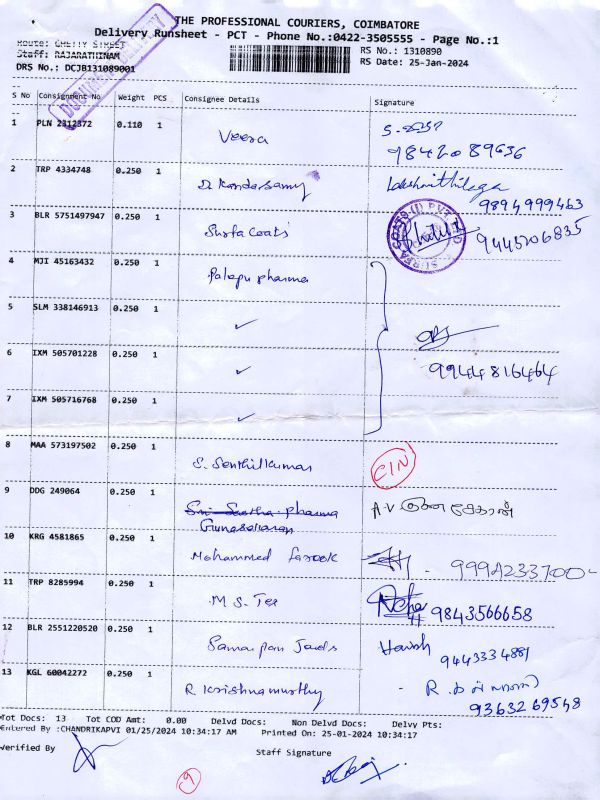 THE PROFESSIONAL COURIERS, COIMBATORE
Delivery Runsheet - PCT - Phone No.:0422-3505555 - Page No.:1
Route: CHETTY STREET
Staff: RAJARATHINAM
DRS No.: DCJB131089001
RS No.: 1310890
RS Date: 25-Jan-2024
S No Consignment No Weight PCS Consignee Details Signature
1 PLN 2312372 0.110 1 Veera
9842089636
2 TRP 4334748 0.250 1 D. Kandasamy
9894999463
3 BLR 5751497947 0.250 1 Surfa Coats
9445206835
4 MJI 45163432 0.250 1 Palapu pharma
5 SLM 338146913 0.250 1 ✓
6 IXM 505701228 0.250 1 ✓
9944816464
7 IXM 505716768 0.250 1 ✓
8 MAA 573197502 0.250 1 S. Senthilkumar CIN
9 DDG 249064 0.250 1 Sri Santha pharma
Gunasekaran
10 KRG 4581865 0.250 1 Mohammed farook 9994233700
11 TRP 8285994 0.250 1 M S. Tex
9843566658
12 BLR 2551220520 0.250 1 Harish
9443334881
13 KGL 60042272 0.250 1 R. Krishnamurthy
9363269548
Tot Docs: 13 Tot COD Amt: 0.00 Delvd Docs: Non Delvd Docs: Delvy Pts:
Entered By :CHANDRIKAPVI 01/25/2024 10:34:17 AM Printed On: 25-01-2024 10:34:17
Verified By Staff Signature
9